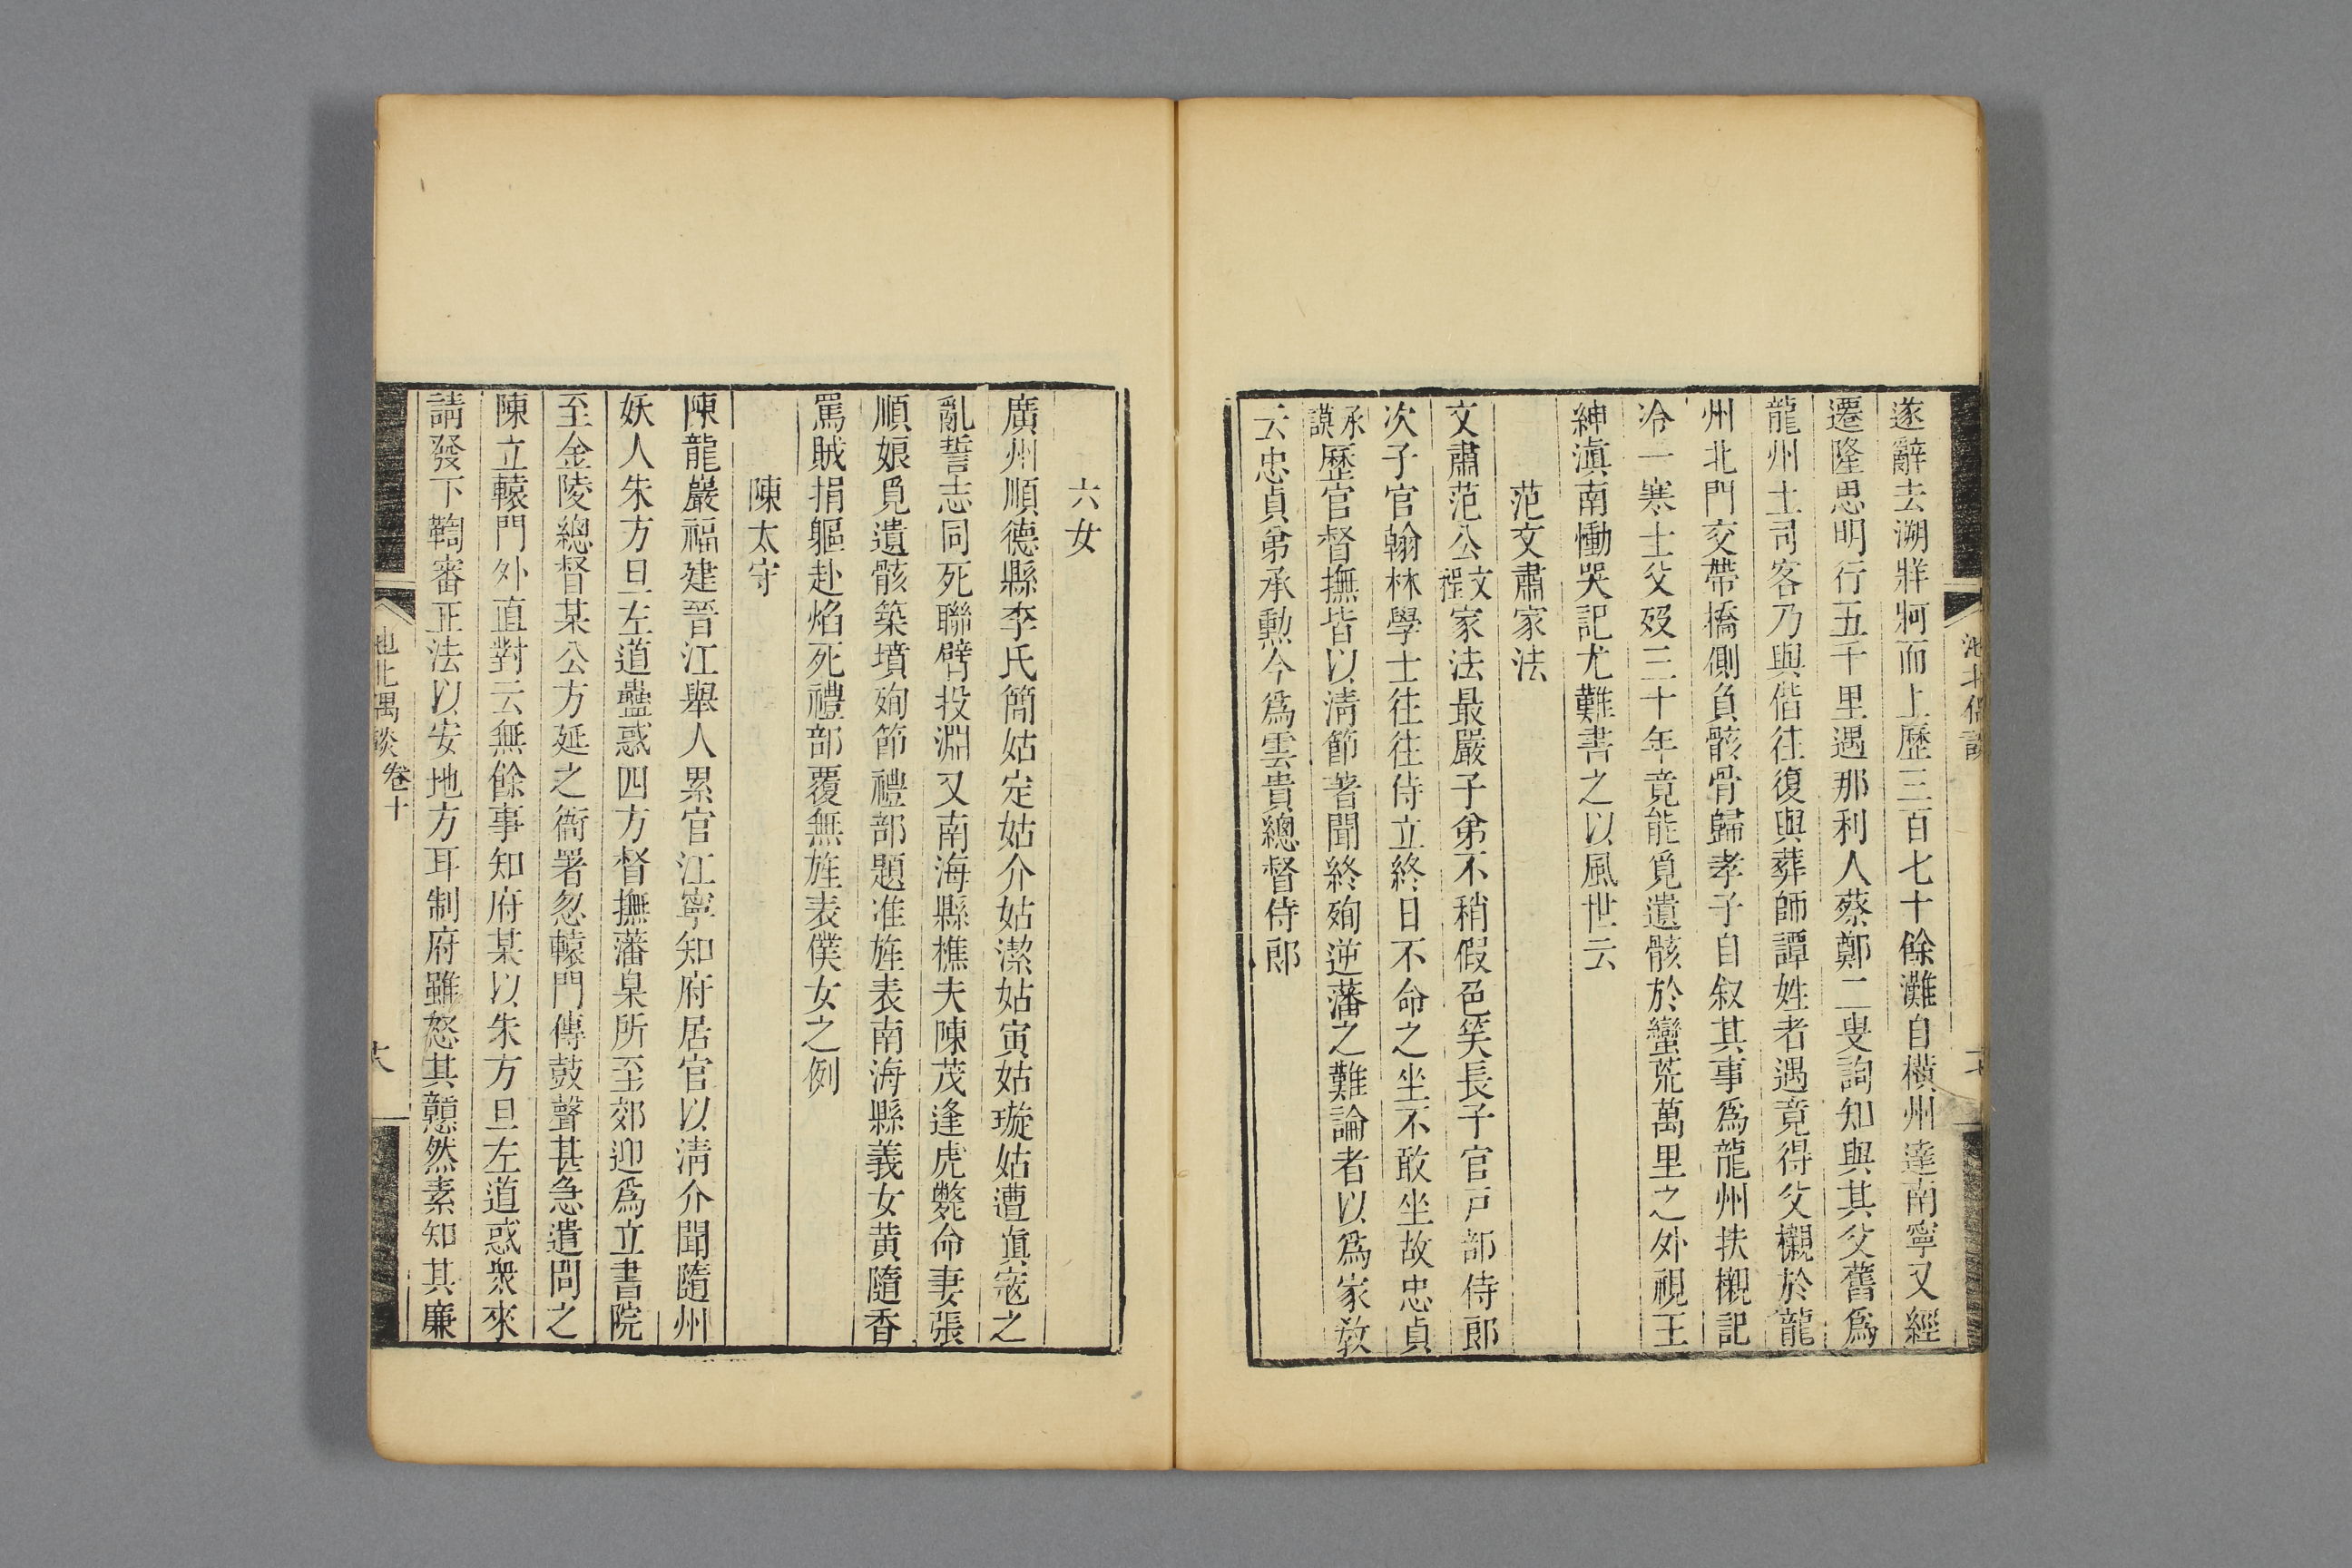 遂辭去溯牂牁而上歷三百七十餘灘自橫州達南寧又經
遷隆思明行五千里遇那利人蔡鄭二叟詢知與其父舊爲
龍州土司客乃與偕往復與葬師譚姓者遇竟得父櫬於龍
州北門交帶橋側負骸骨歸孝子自叙其事爲龍州扶櫬記
冷一寒士父歿三十年竟能覓遺骸於蠻荒萬里之外視王
紳滇南慟哭記尤難書之以風世云
范文肅家法
文肅范公文程家法最嚴子弟不稍假色笑長子官戸部侍郎
次子官翰林學士往往侍立終日不命之坐不敢坐故忠貞
承謨歷官督撫皆以淸節著聞終殉逆藩之難論者以爲家敎
云忠貞弟承勲今爲雲貴總督侍郎
六女
廣州順德縣李氏簡姑定姑介姑潔姑寅姑璇姑遭眞寇之
亂誓志同死聯臂投淵又南海縣樵夫陳茂逢虎斃命妻張
順娘覓遺骸築墳殉節禮部題准旌表南海縣義女黃隨香
罵賊捐軀赴焰死禮部覆無旌表僕女之例
陳太守
陳龍巖福建晉江舉人累官江寧知府居官以淸介聞隨州
妖人朱方旦左道蠱惑四方督撫藩臬所至郊迎爲立書院
至金陵總督某公方延之衙署忽轅門傳鼓聲甚急遣問之
陳立轅門外直對云無餘事知府某以朱方旦左道惑衆來
請發下鞫審正法以安地方耳制府雖怒其戇然素知其廉
池北偶談 卷十